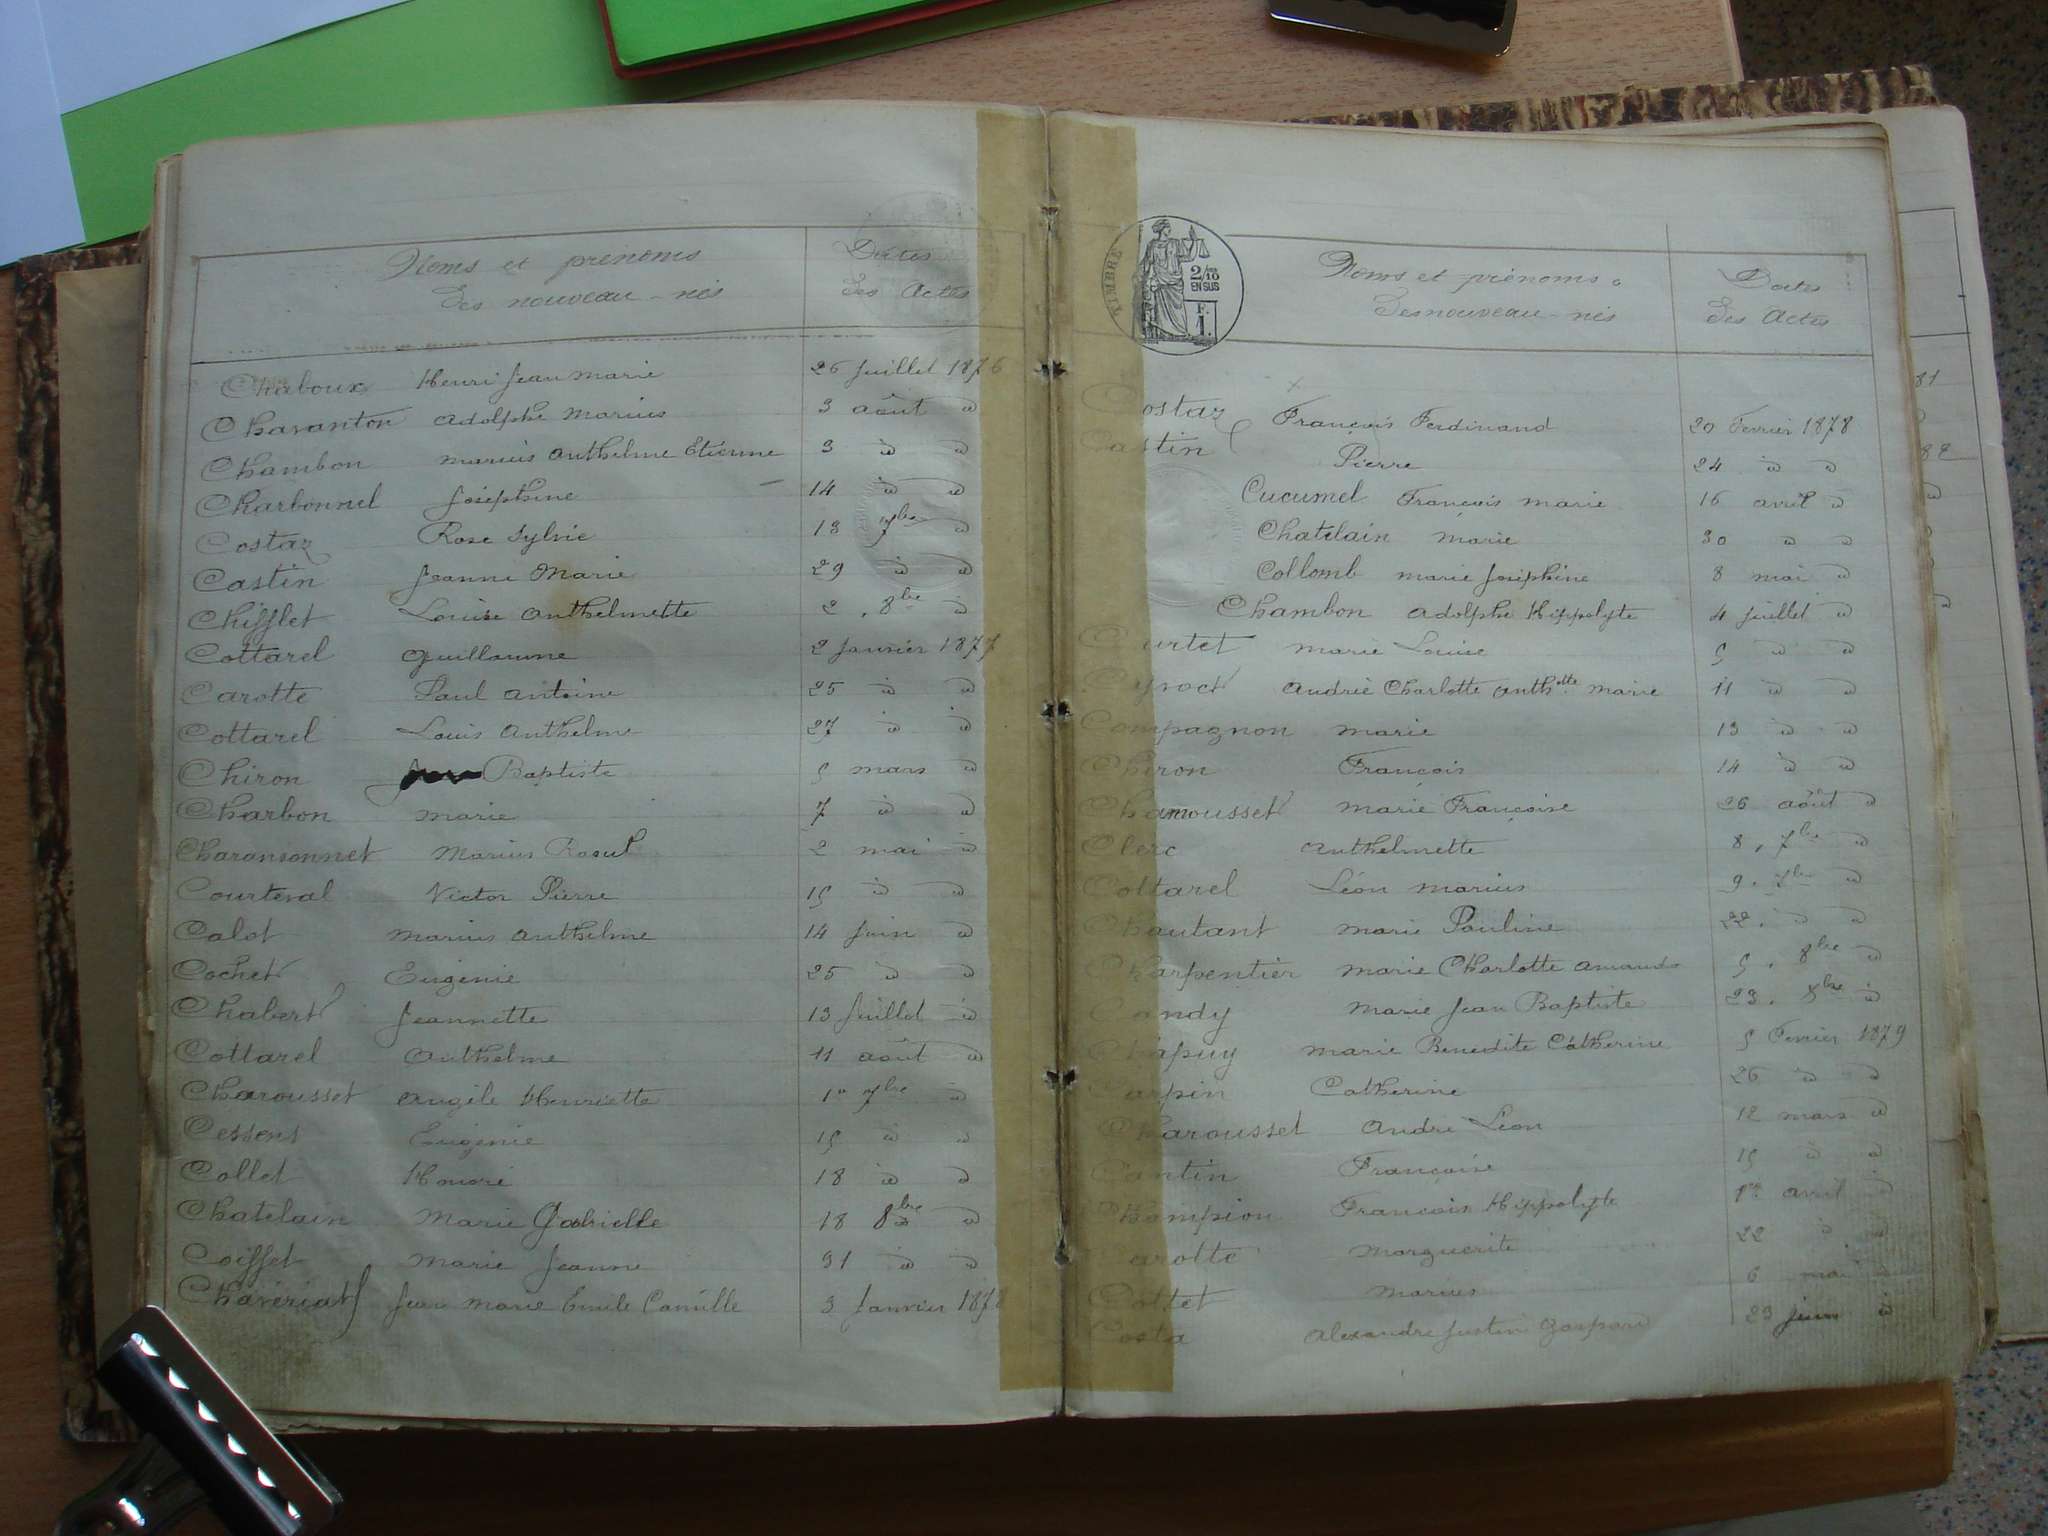 Noms et prénoms
des nouveau-nés
Dates
des Actes
Chaboux Henri Jean Marie 26 Juillet 1876
Charanton Adolphe Marius 3 août d
Chambon Marius Anthelme Etienne 3 d d
Charbonnel Joséphine 14 d d
Costaz Rose Sylvie 13 7bre d
Castin Jeanne Marie 29 d d
Chifflet Louise Anthelmette 2 8bre d
Cottarel Guillaume 2 Janvier 1877
Carotte Paul Antoine 25 d d
Cottarel Louis Anthelme 27 d d
Chiron Baptiste 5 mars d
Charbon Marie 7 d d
Charansonnet Marius Raoul 2 mai d
Courteval Victor Pierre 15 d d
Calot Marius Anthelme 14 Juin d
Cochet Eugénie 25 d d
Chabert Jeannette 13 Juillet d
Cottarel Anthelme 11 août d
Charousset Angèle Henriette 1er 7bre d
Cessens Eugénie 15 d d
Collet Honoré 18 d d
Chatelain Marie Gabrielle 18 8bre d
Coiffet Marie Jeanne 31 d d
Chavériat Jean Marie Emile Camille 3 Janvier 1878
TIMBRE
2/10
EN SUS
F.
1.
Noms et prénoms
des nouveau-nés
Dates
des Actes
Costaz François Ferdinand 20 Fevrier 1878
Castin Pierre 24 d d
Cucumel François Marie 16 avril d
Chatelain Marie 30 d d
Collomb Marie Joséphine 8 mai d
Chambon Adolphe Hippolyte 4 Juillet d
Curtet Marie Louise 5 d d
Andrée Charlotte Anthtte Marie 11 d d
Compagnon Marie 13 d d
Chiron François 14 d d
Chamousset Marie Françoise 26 août d
Clerc Anthelmette 8, 7bre d
Cottarel Léon Marius 9. 7bre d
Chautant Marie Pauline 22. d d
Charpentier Marie Charlotte Amanda 5. 8bre d
Candy Marie Jean Baptiste 23. 8bre d
Chapuy Marie Benedite Catherine 5 Fevrier 1879
Carpin Catherine 26 d d
Charousset André Léon 12 mars d
Cantin Françoise 15 d d
Champion François Hippolyte 1er avril d
Carotte Marguerite 22 d d
Collet Marius 6 mai d
Costa Alexandre Justin Gaspard 23 juin d